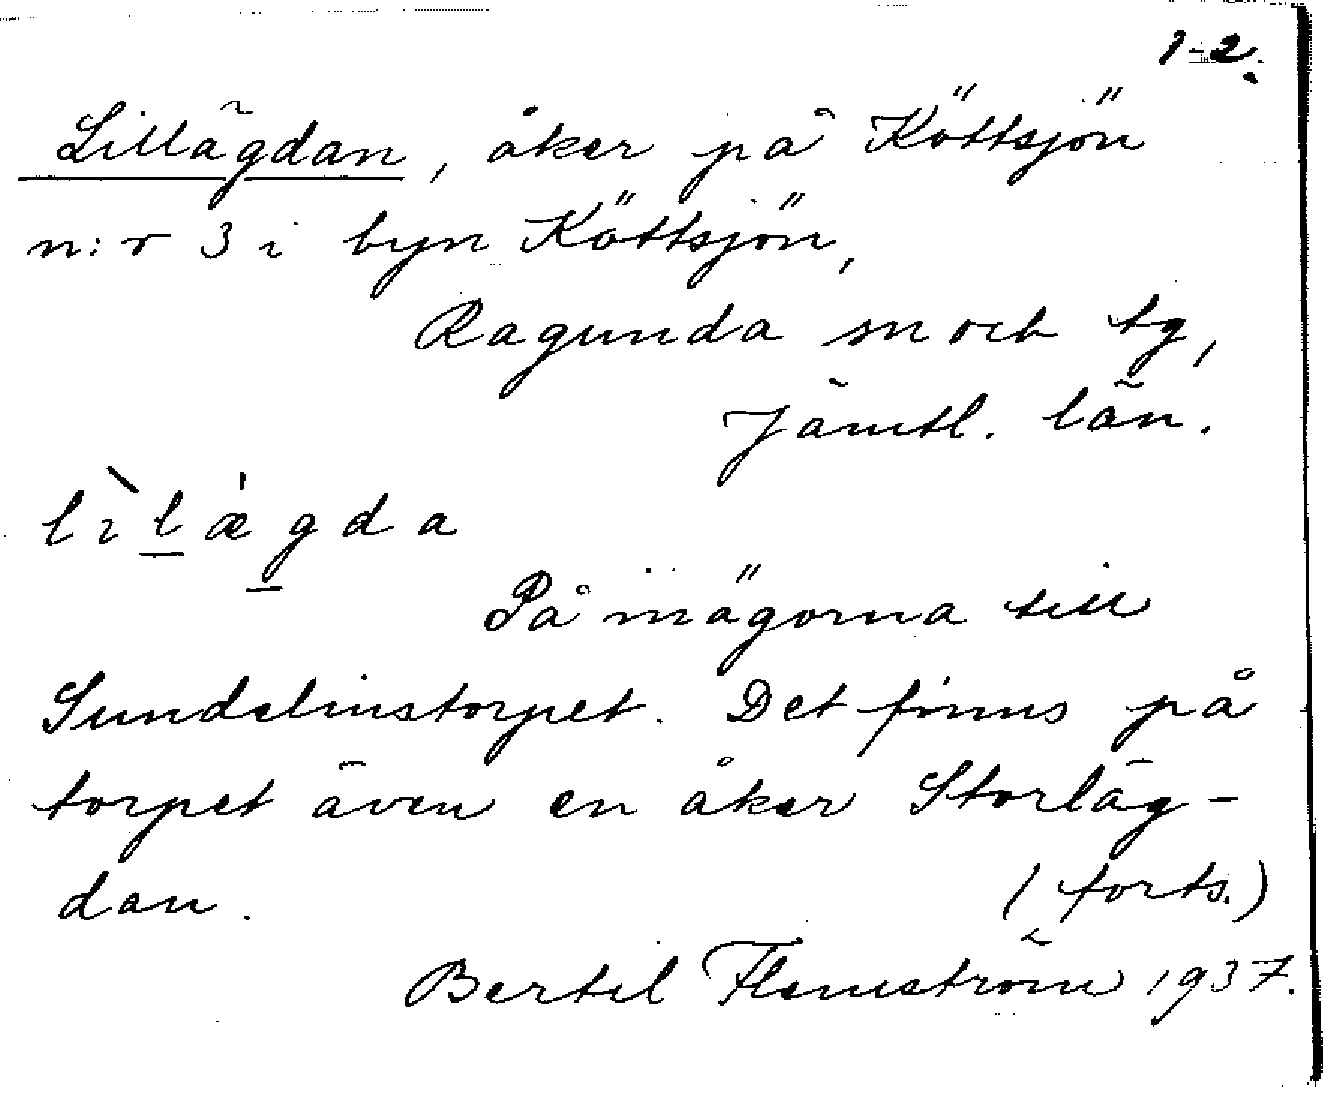 1-2.
Lillägdan, åker på Köttsjön
n:r 3 i byn Köttsjön,
Ragunda sn och tg,
Jämtl. län.
lìlǽgda
På inägorna till
Sundelinstorpet. Det finns på
torpet även en åker Storläg-
dan.
(forts.)
Bertil Flemström 1937.